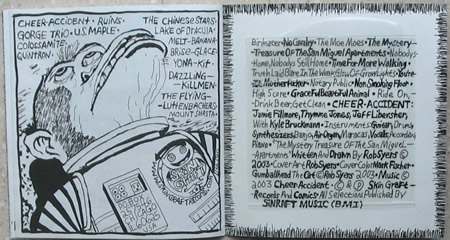 CHEER-ACCIDENT · RUINS ·
GORGE TRIO · U.S MAPLE ·
COLOSSAMITE ·
QUINTRON ·
THE CHINESE STARS ·
LAKE OF DRACULA ·
MELT-BANANA ·
BRISE-GLACE
YONA-KIT ·
DAZZLING
KILLMEN ·
THE FLYING
LUTTENBACHERS
MOUNT SHASTA ·
No Cavalry · The Moe Moes · The Mystery
Treasure Of The San Miguel Apartments · Nobody's
Home, Nobody's Still Home · Time For More Walking
Truth Laid Bare In The Weak Glow Of Grow Lights · You're
Notary Public · Non Smoking Floor ·
High Score · Graceful Beautiful Animal · Ride On,
Drink Beer, Get Clean · CHEER-ACCIDENT:
Jamie Fillmore, Thymme Jones, Jeff Libersher,
With Kyle Bruckmann · Instruments: Guitar, Drums
Synthesizers, Banjo, Air Organ, Maracas, Vocals, Accordion,
Piano · "The Mystery Treasure Of The San Miguel
Apartments" Written And Drawn By Rob Syers ©
2003 · Cover Art Rob Syers · Cover Color Mark Fischer ·
Gumballhead The Cat © Rob Syers 2003 · Music ©
2003 Cheer-Accident · © & ℗ Skin Graft
Records And Comics · All Selections Published By
SKiNRiFT MUSIC (BMI)